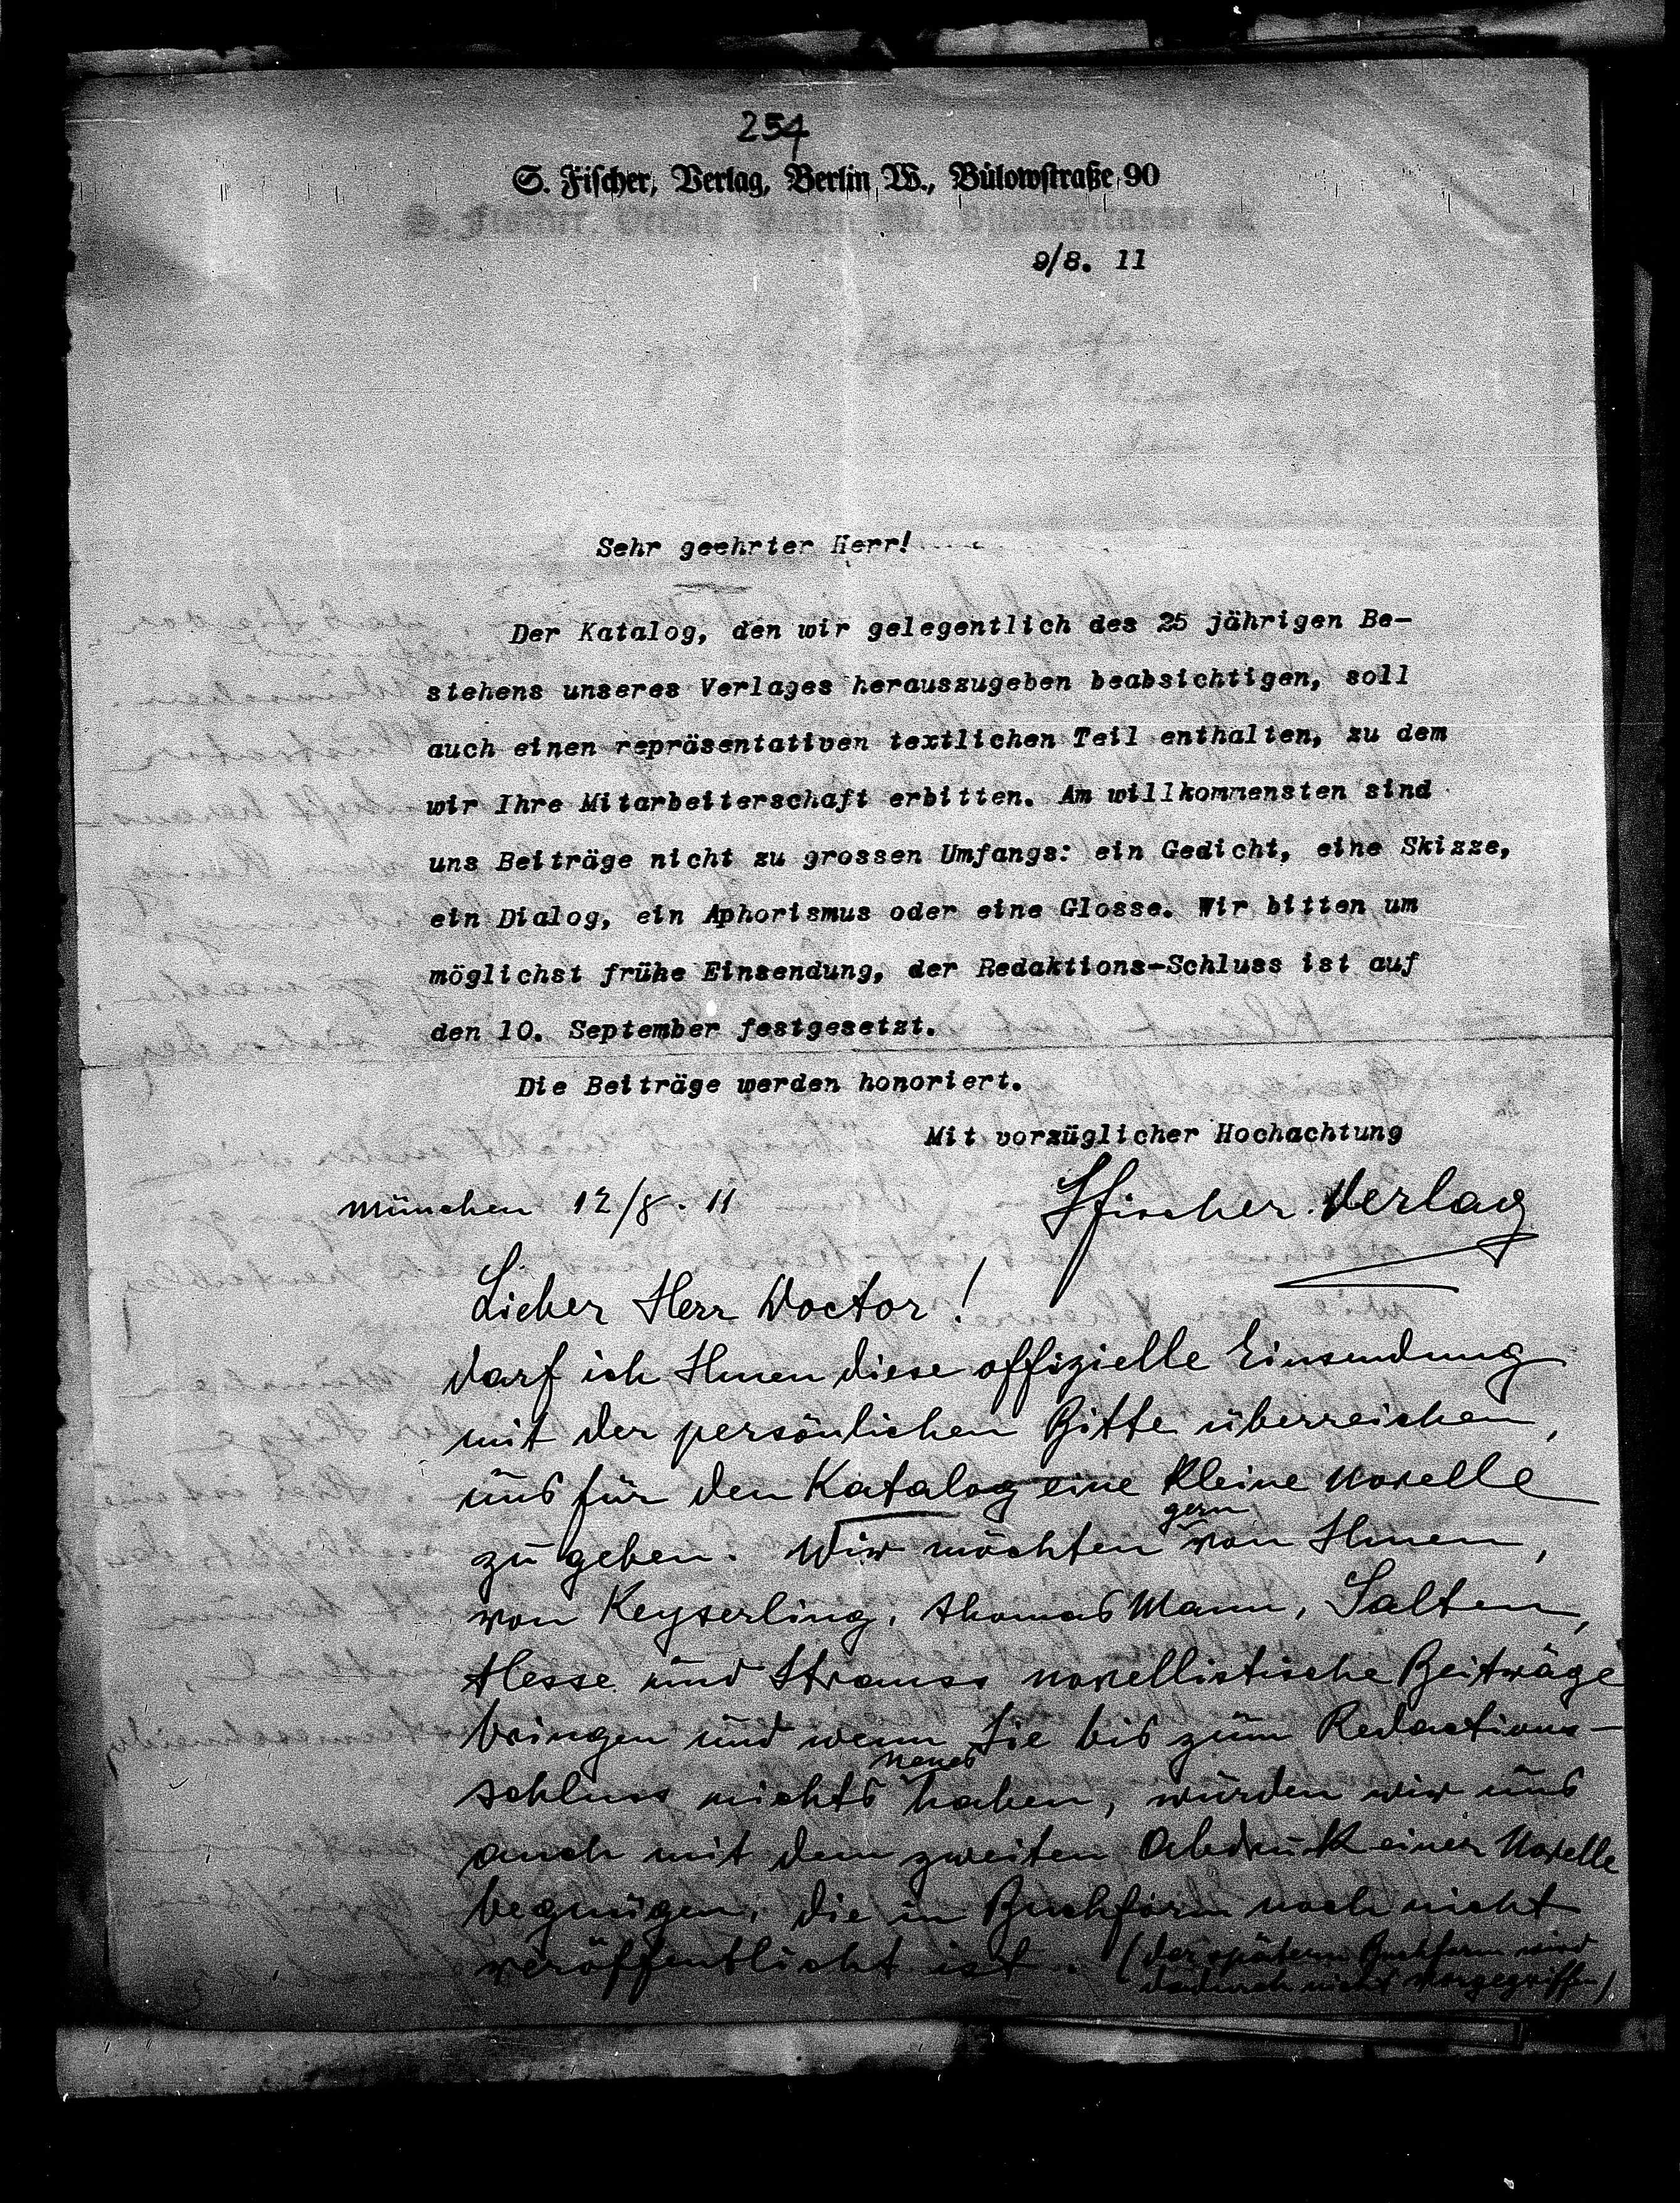 254
S. Fischer, Verlag, Berlin W., Bülowstraße 90
9/8. 11
Sehr geehrter Herr!
Der Katalog, den wir gelegentlich des 25 jährigen Be-
stehens unseres Verlages herauszugeben beabsichtigen, soll
auch einen repräsentativen textlichen Teil enthalten, zu dem
wir Ihre Mitarbeiterschaft erbitten. Am willkommensten sind
uns Beiträge nicht zu grossen Umfangs: ein Gedicht, eine Skizze,
ein Dialog, ein Aphorismus oder eine Glosse. Wir bitten um
möglichst frühe Einsendung, der Redaktions-Schluss ist auf
den 10. September festgesetzt.
Die Beiträge werden honoriert.
Mit vorzüglicher Hochachtung
SFischer. Verlag
München 12/8. 11
Lieber Herr Doctor!
darf ich Ihnen diese offizielle Einsendung
mit der persönlichen Bitte überreichen,
uns für den Katalog eine kleine Novelle
zu geben. Wir möchten gern von Ihnen,
von Keyserling, Thomas Mann, Salten,
Hesse und Strauss novellistische Beiträge
bringen und wenn Sie bis zum Redactions-
schluss nichts neues haben, würden wir uns
auch mit dem zweiten Abdruck einer Novelle
begnügen, die in Buchform noch nicht
veröffentlicht ist. (der spätern Buchform wird
dadurch nicht vorgegriffen)